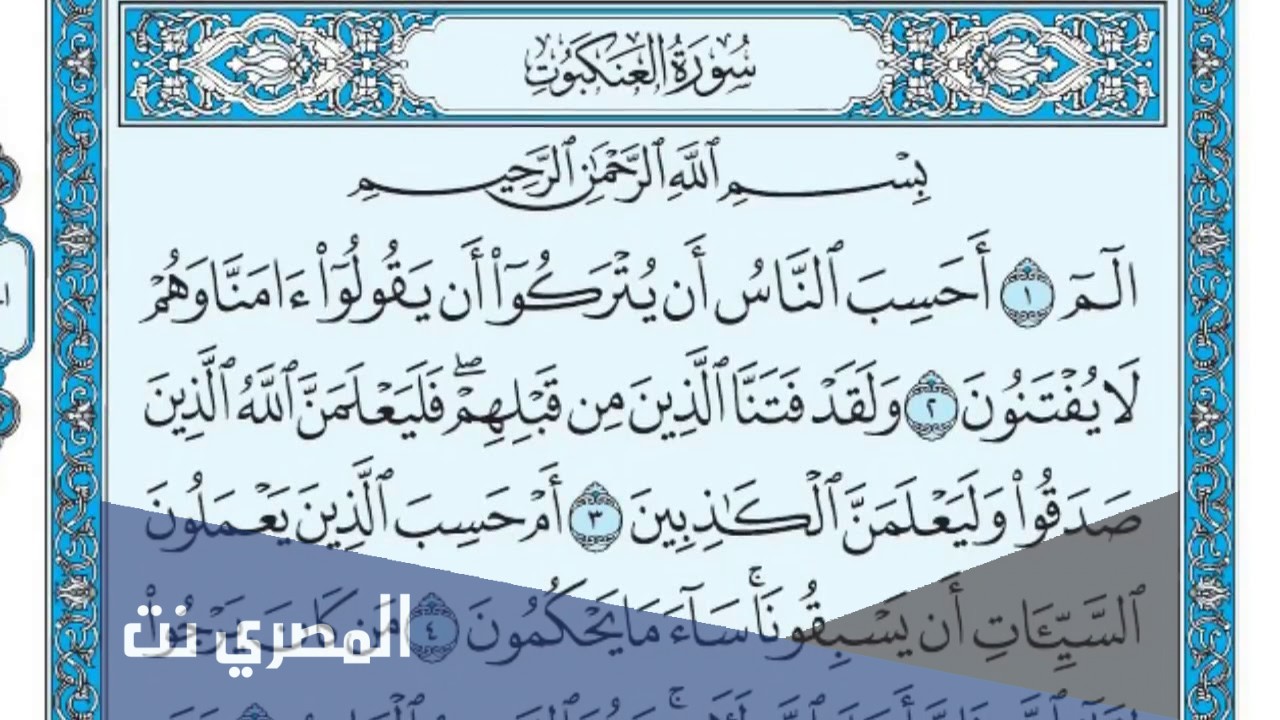 سُورَةُ الْعَنكَبُوتِ
بِسْمِ ٱللَّهِ ٱلرَّحْمَٰنِ ٱلرَّحِيمِ
الٓمٓ ١ أَحَسِبَ ٱلنَّاسُ أَن يُتْرَكُوٓا۟ أَن يَقُولُوٓا۟ ءَامَنَّا وَهُمْ
لَا يُفْتَنُونَ ٢ وَلَقَدْ فَتَنَّا ٱلَّذِينَ مِن قَبْلِهِمْ ۖ فَلَيَعْلَمَنَّ ٱللَّهُ ٱلَّذِينَ
صَدَقُوا۟ وَلَيَعْلَمَنَّ ٱلْكَٰذِبِينَ ٣ أَمْ حَسِبَ ٱلَّذِينَ يَعْمَلُونَ
ٱلسَّيِّـَٔاتِ أَن يَسْبِقُونَا ۚ سَآءَ مَا يَحْكُمُونَ ٤ مَن كَانَ يَرْجُوا۟
المصري نت